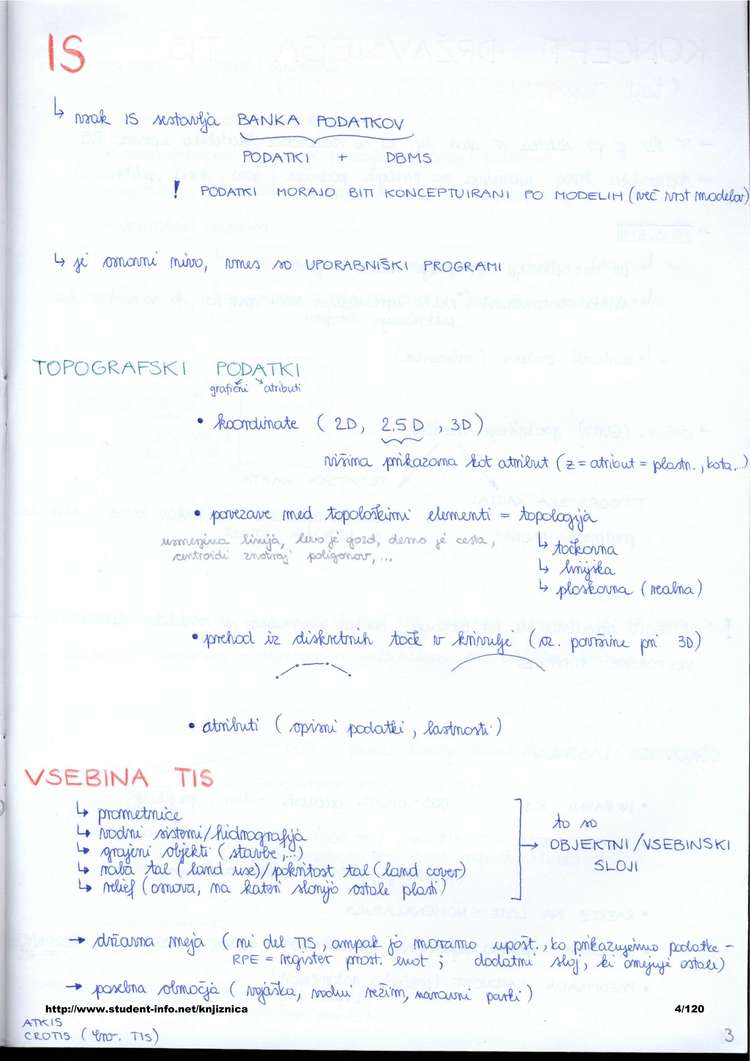 IS
↳ vsak IS sestavlja BANKA PODATKOV
PODATKI + DBMS
! PODATKI MORAJO BITI KONCEPTUIRANI PO MODELIH (več vrst modelov)
↳ je osnovni nivo, vmes so UPORABNIŠKI PROGRAMI
TOPOGRAFSKI PODATKI
grafični atributi
• koordinate ( 2D, 2.5D , 3D )
višina prikazana kot atribut ( z = atribut = plastn. , kota...)
• povezave med topološkimi elementi = topologija
usmerjena linija, levo je gozd, desno je cesta,
centroidi znotraj poligonov, ...
↳ točkovna
↳ linijska
↳ ploskovna (realna)
• prehod iz diskretnih točk v krivulje ( oz. površine pri 3D)
• atributi ( opisni podatki , lastnosti )
VSEBINA TIS
↳ prometnice
↳ vodni sistemi/hidrografija
↳ grajeni objekti ( stavbe ,...)
↳ raba tal ( land use)/pokritost tal (land cover)
↳ relief ( osnova, na kateri slonijo ostale plasti)
to so
→ OBJEKTNI/VSEBINSKI
SLOJI
→ državna meja ( ni del TIS , ampak jo moramo upošt. , ko prikazujemo podatke -
RPE = register prost. enot ; dodatni sloj, ki omejuje ostale)
→ posebna območja ( vojaška, vodni režim, naravni parki )
http://www.student-info.net/knjiznica 4/120
ATKIS
CROTIS ( hrv. TIS) 3